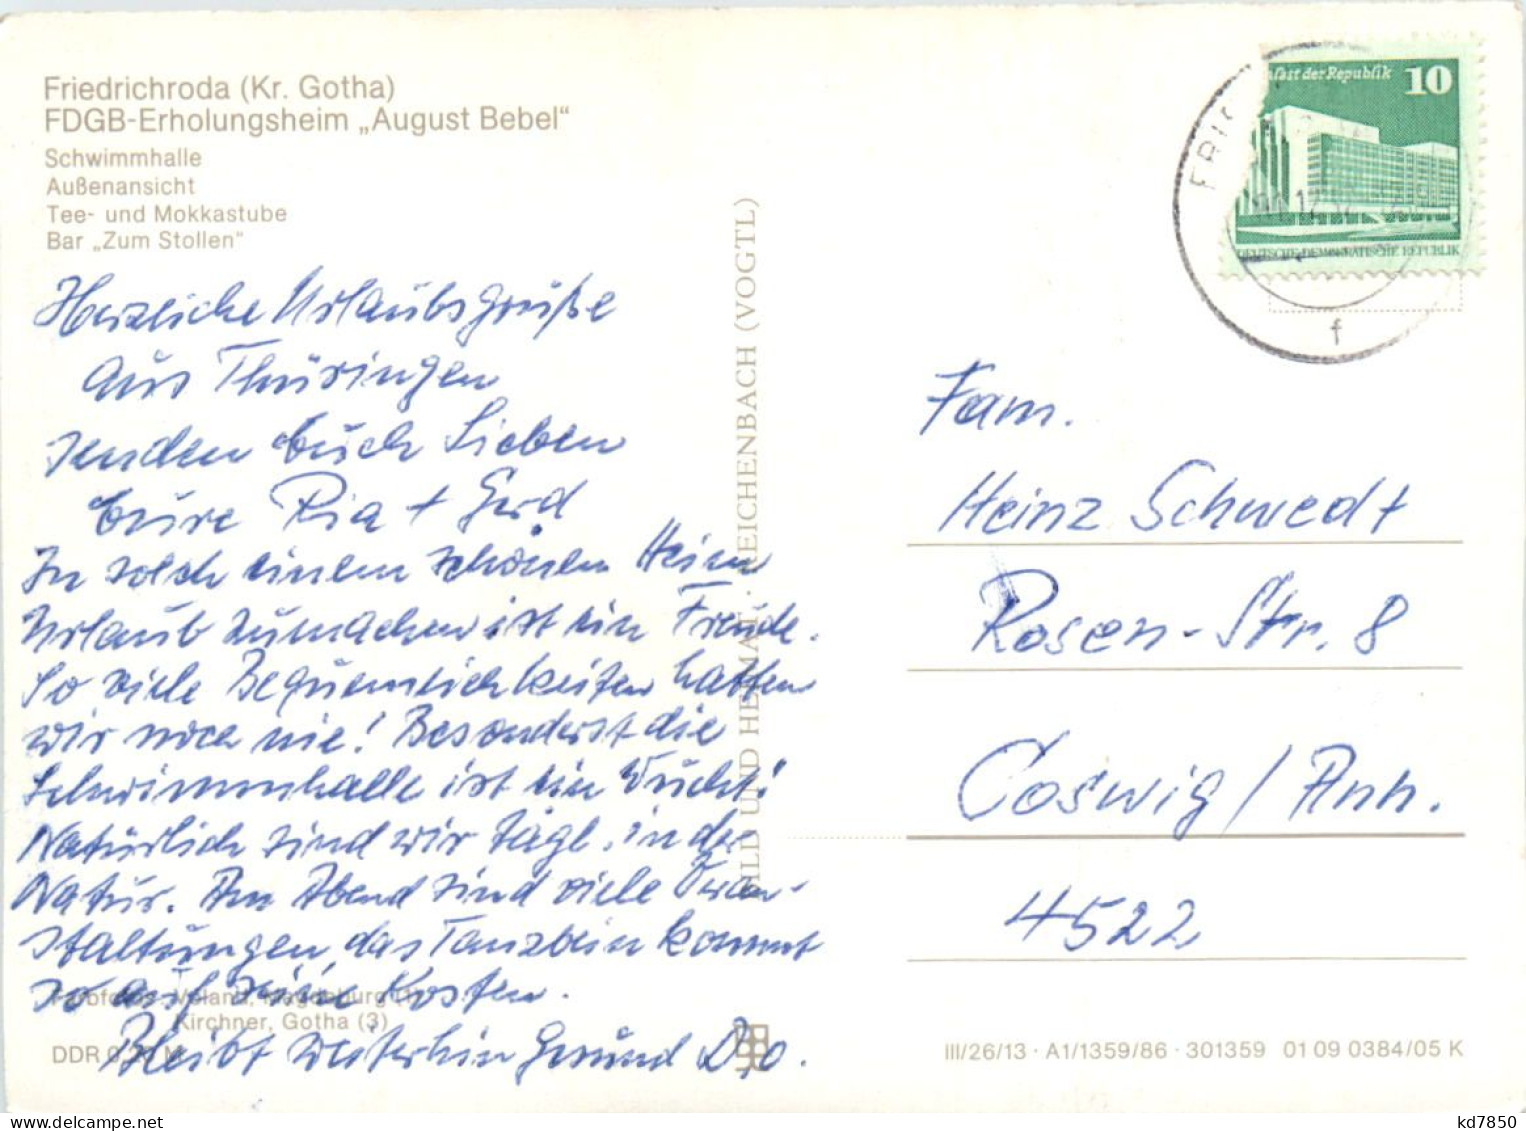 Friedrichroda (Kr. Gotha)
FDGB-Erholungsheim „August Bebel“
Schwimmhalle
Außenansicht
Tee- und Mokkastube
Bar „Zum Stollen“
Herzliche Urlaubsgrüße
aus Thüringen
senden Euch Lieben
Eure Ria + Gerd
In solch einem schönen Heim
Urlaub zumachen ist ein Freude.
So viele Bequemlichkeiten hatten
wir noch nie! Besonderst die
Schwimmhalle ist ein Wucht!
Natürlich sind wir tägl. in der
Natur. Am Abend sind viele Veran-
staltungen, das Tanzbein kommt
so auf sein Kosten.
Bleibt weiterhin Gesund D,o.
Kirchner, Gotha (3)
DDR
BILD UND HEIMAT · REICHENBACH (VOGTL)
alast der Republik 10
DEUTSCHE DEMOKRATISCHE REPUBLIK
FRIED
f
Fam.
Heinz Schwedt
Rosen-Str. 8
Coswig / Anh.
4522
III/26/13 · A1/1359/86 · 301359 01 09 0384/05 K
kd7850